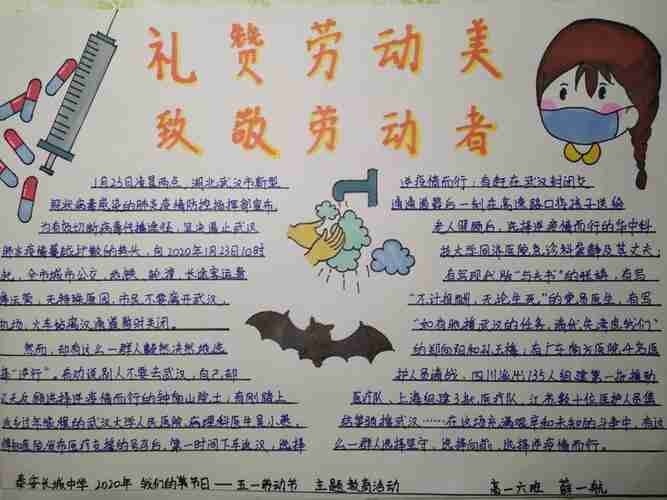 礼赞劳动美
致敬劳动者
1月23日凌晨两点，湖北武汉市新型
冠状病毒感染的肺炎疫情防控指挥部宣布，
为有效切断病毒传播途径，坚决遏止武汉
肺炎疫情蔓延扩散的势头，自2020年1月23日10时
起，全市城市公交，地铁，轮渡，长途客运暂
停运营，无特殊原因，市民不要离开武汉，
机场，火车站离汉通道暂时关闭。
然而，却有这么一群人毅然决然地选
择“逆行”。有劝说别人不要去武汉，自己却
义无反顾选择逆疫情而行的钟南山院士；有刚踏上
返乡过年旅程的武汉大学人民医院，病理科医生吴小艳，
得知医院发布医疗支援的号召后，第一时间下车返汉，选择
逆疫情而行；有赶在武汉封闭交
通通道最后一刻在高速路口将孩子送给
老人照顾后，选择逆疫情而行的华中科
技大学同济医院急诊科 及其丈夫，
有写现代版“与夫书”的 ，有写
“不计报酬，无论生死”的党员医生，有写
“如有驰援武汉的任务，请优先考虑我们”
的郑向阳和孙志 ；有广东南方医院，4名医
护人员请战，四川派出135人组建第一批援助
医疗队，上海组建3批医疗队，江苏数十位医护人员集
结驰援武汉……在这场充满艰辛和未知的斗争中，有这
么一群人选择坚守，选择向前，选择逆疫情而行。
泰安长城中学 2020年 我们的节日——五一劳动节 主题教育活动
高一六班 薛一航